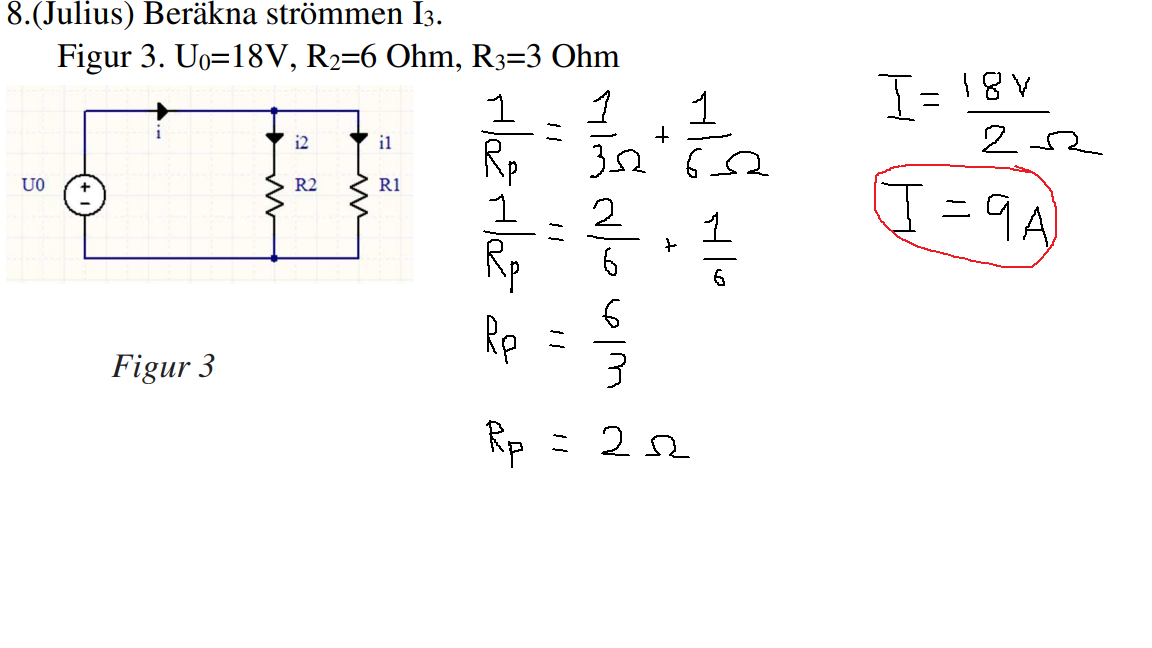 8.(Julius) Beräkna strömmen I₃.
Figur 3. U₀=18V, R₂=6 Ohm, R₃=3 Ohm
i
i2
i1
U0
+
−
R2
R1
Figur 3
1/Rp = 1/3Ω + 1/6Ω
1/Rp = 2/6 + 1/6
Rp = 6/3
Rp = 2Ω
I = 18V/2Ω
I = 9A